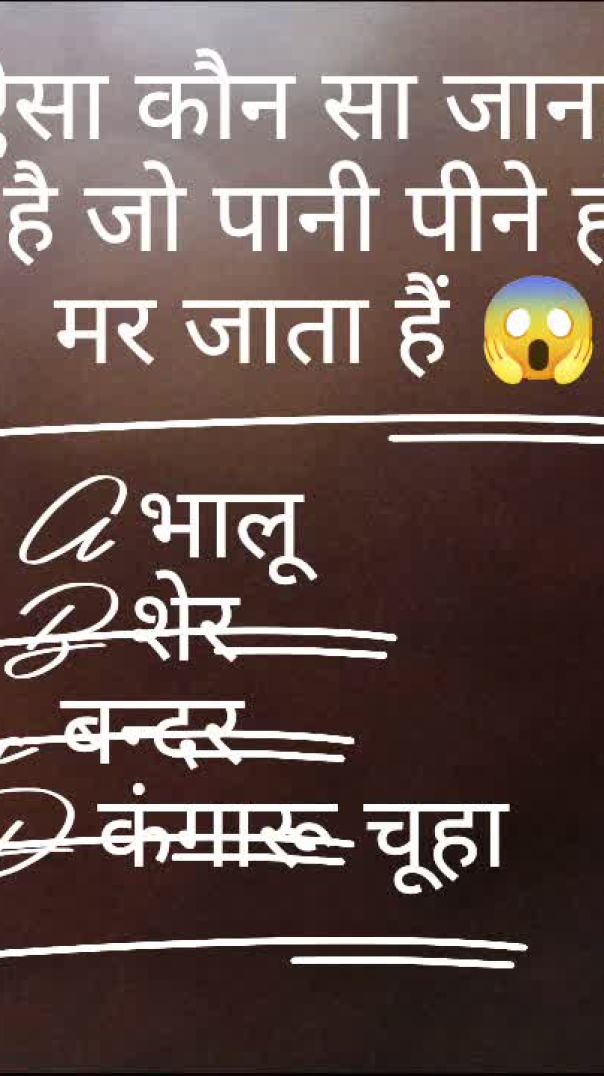 ऐसा कौन सा जान
है जो पानी पीने ह
मर जाता हैं 😱
A भालू
B शेर
बन्दर
D कंगारू चूहा